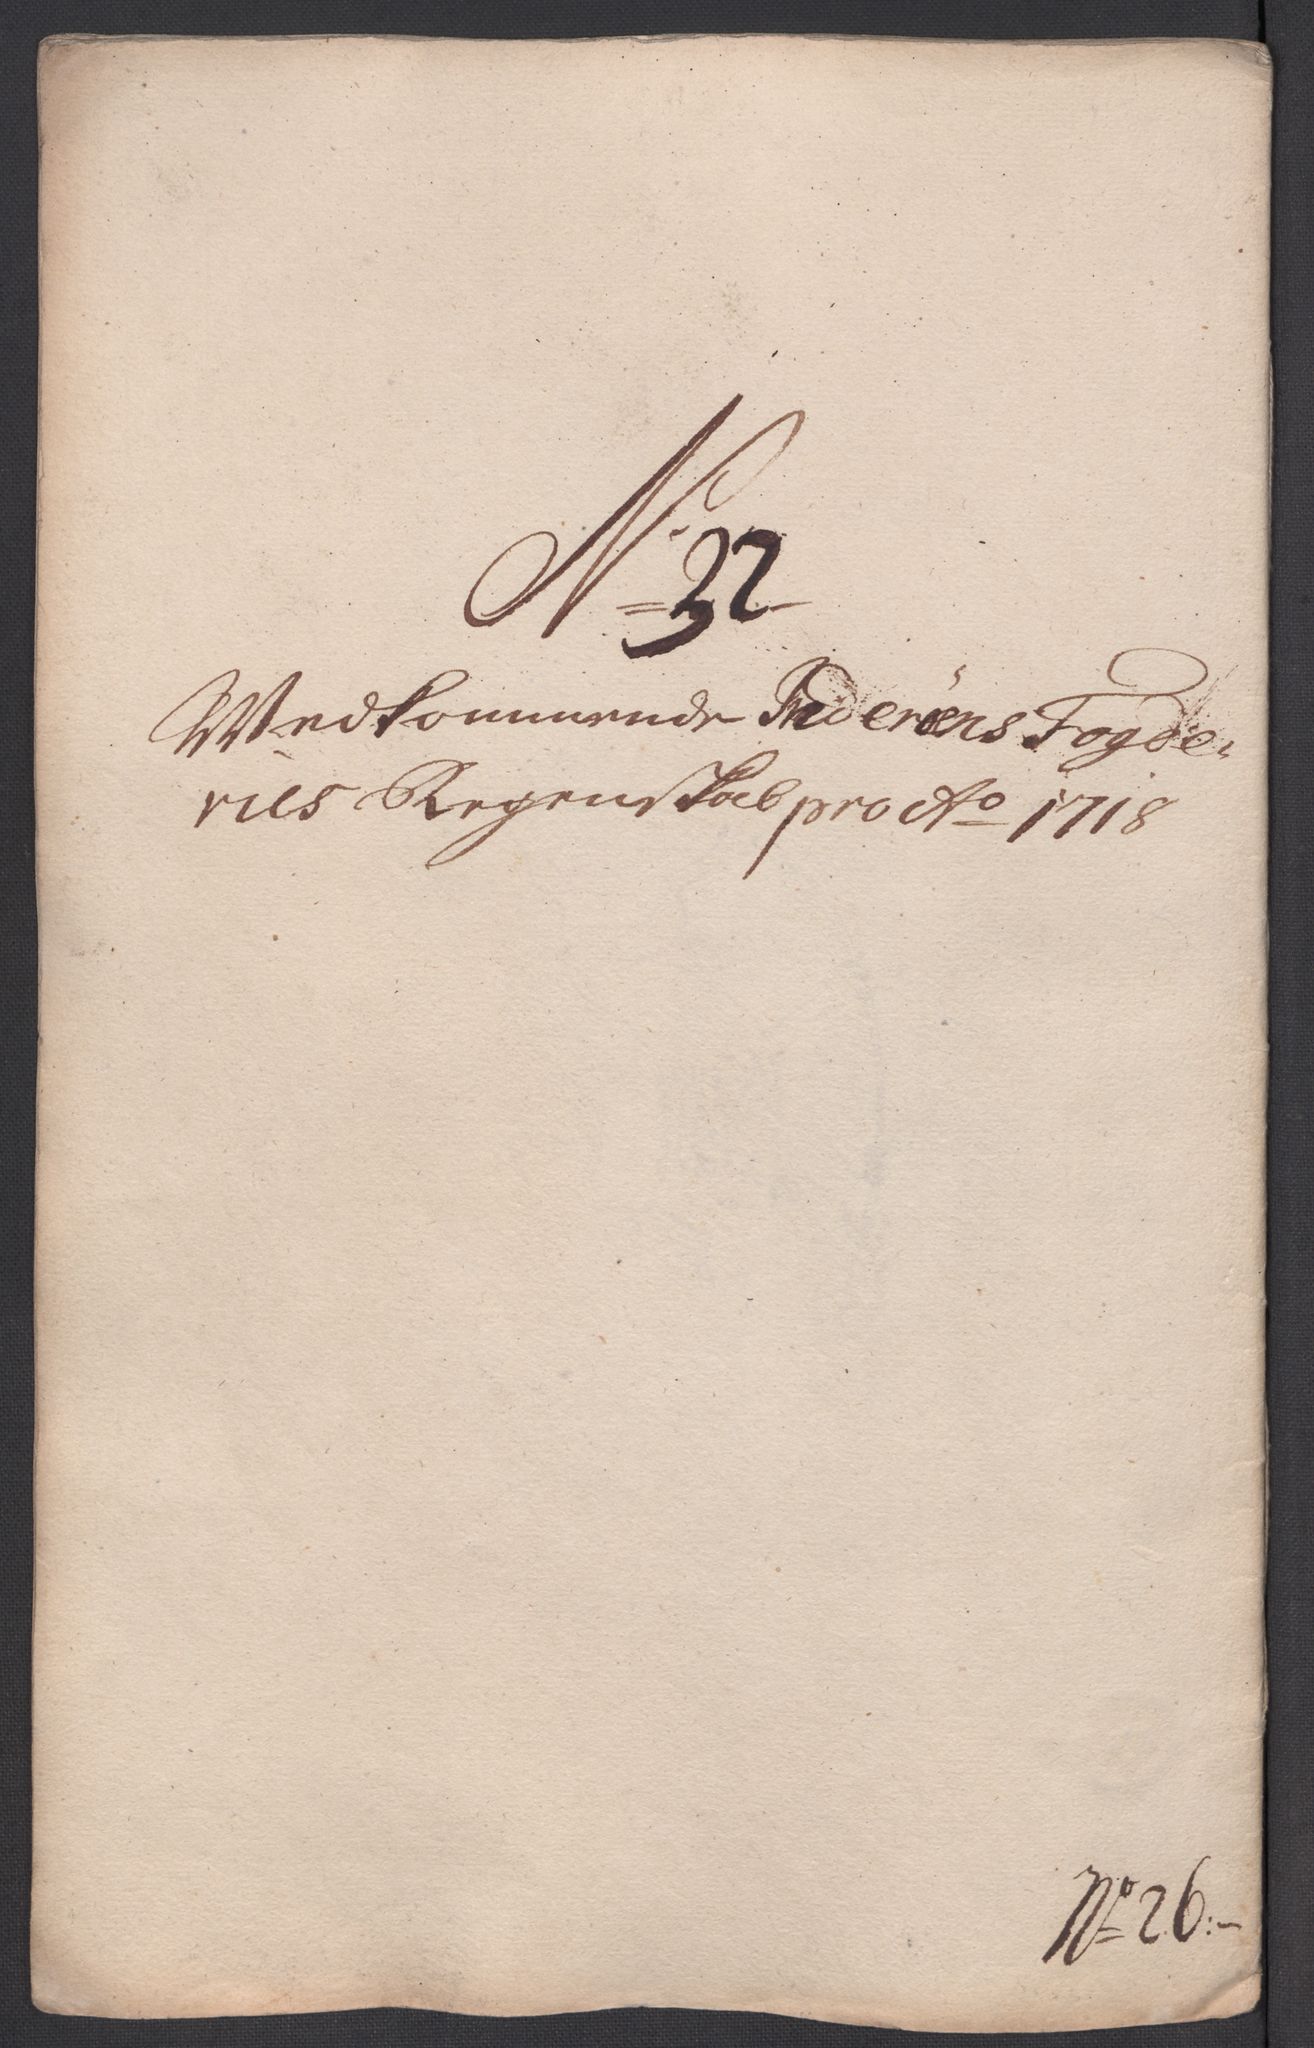 No 32
Wedkommende Inderöens Fogde-
ries Regenskab pro Ao 1718
No 26:-